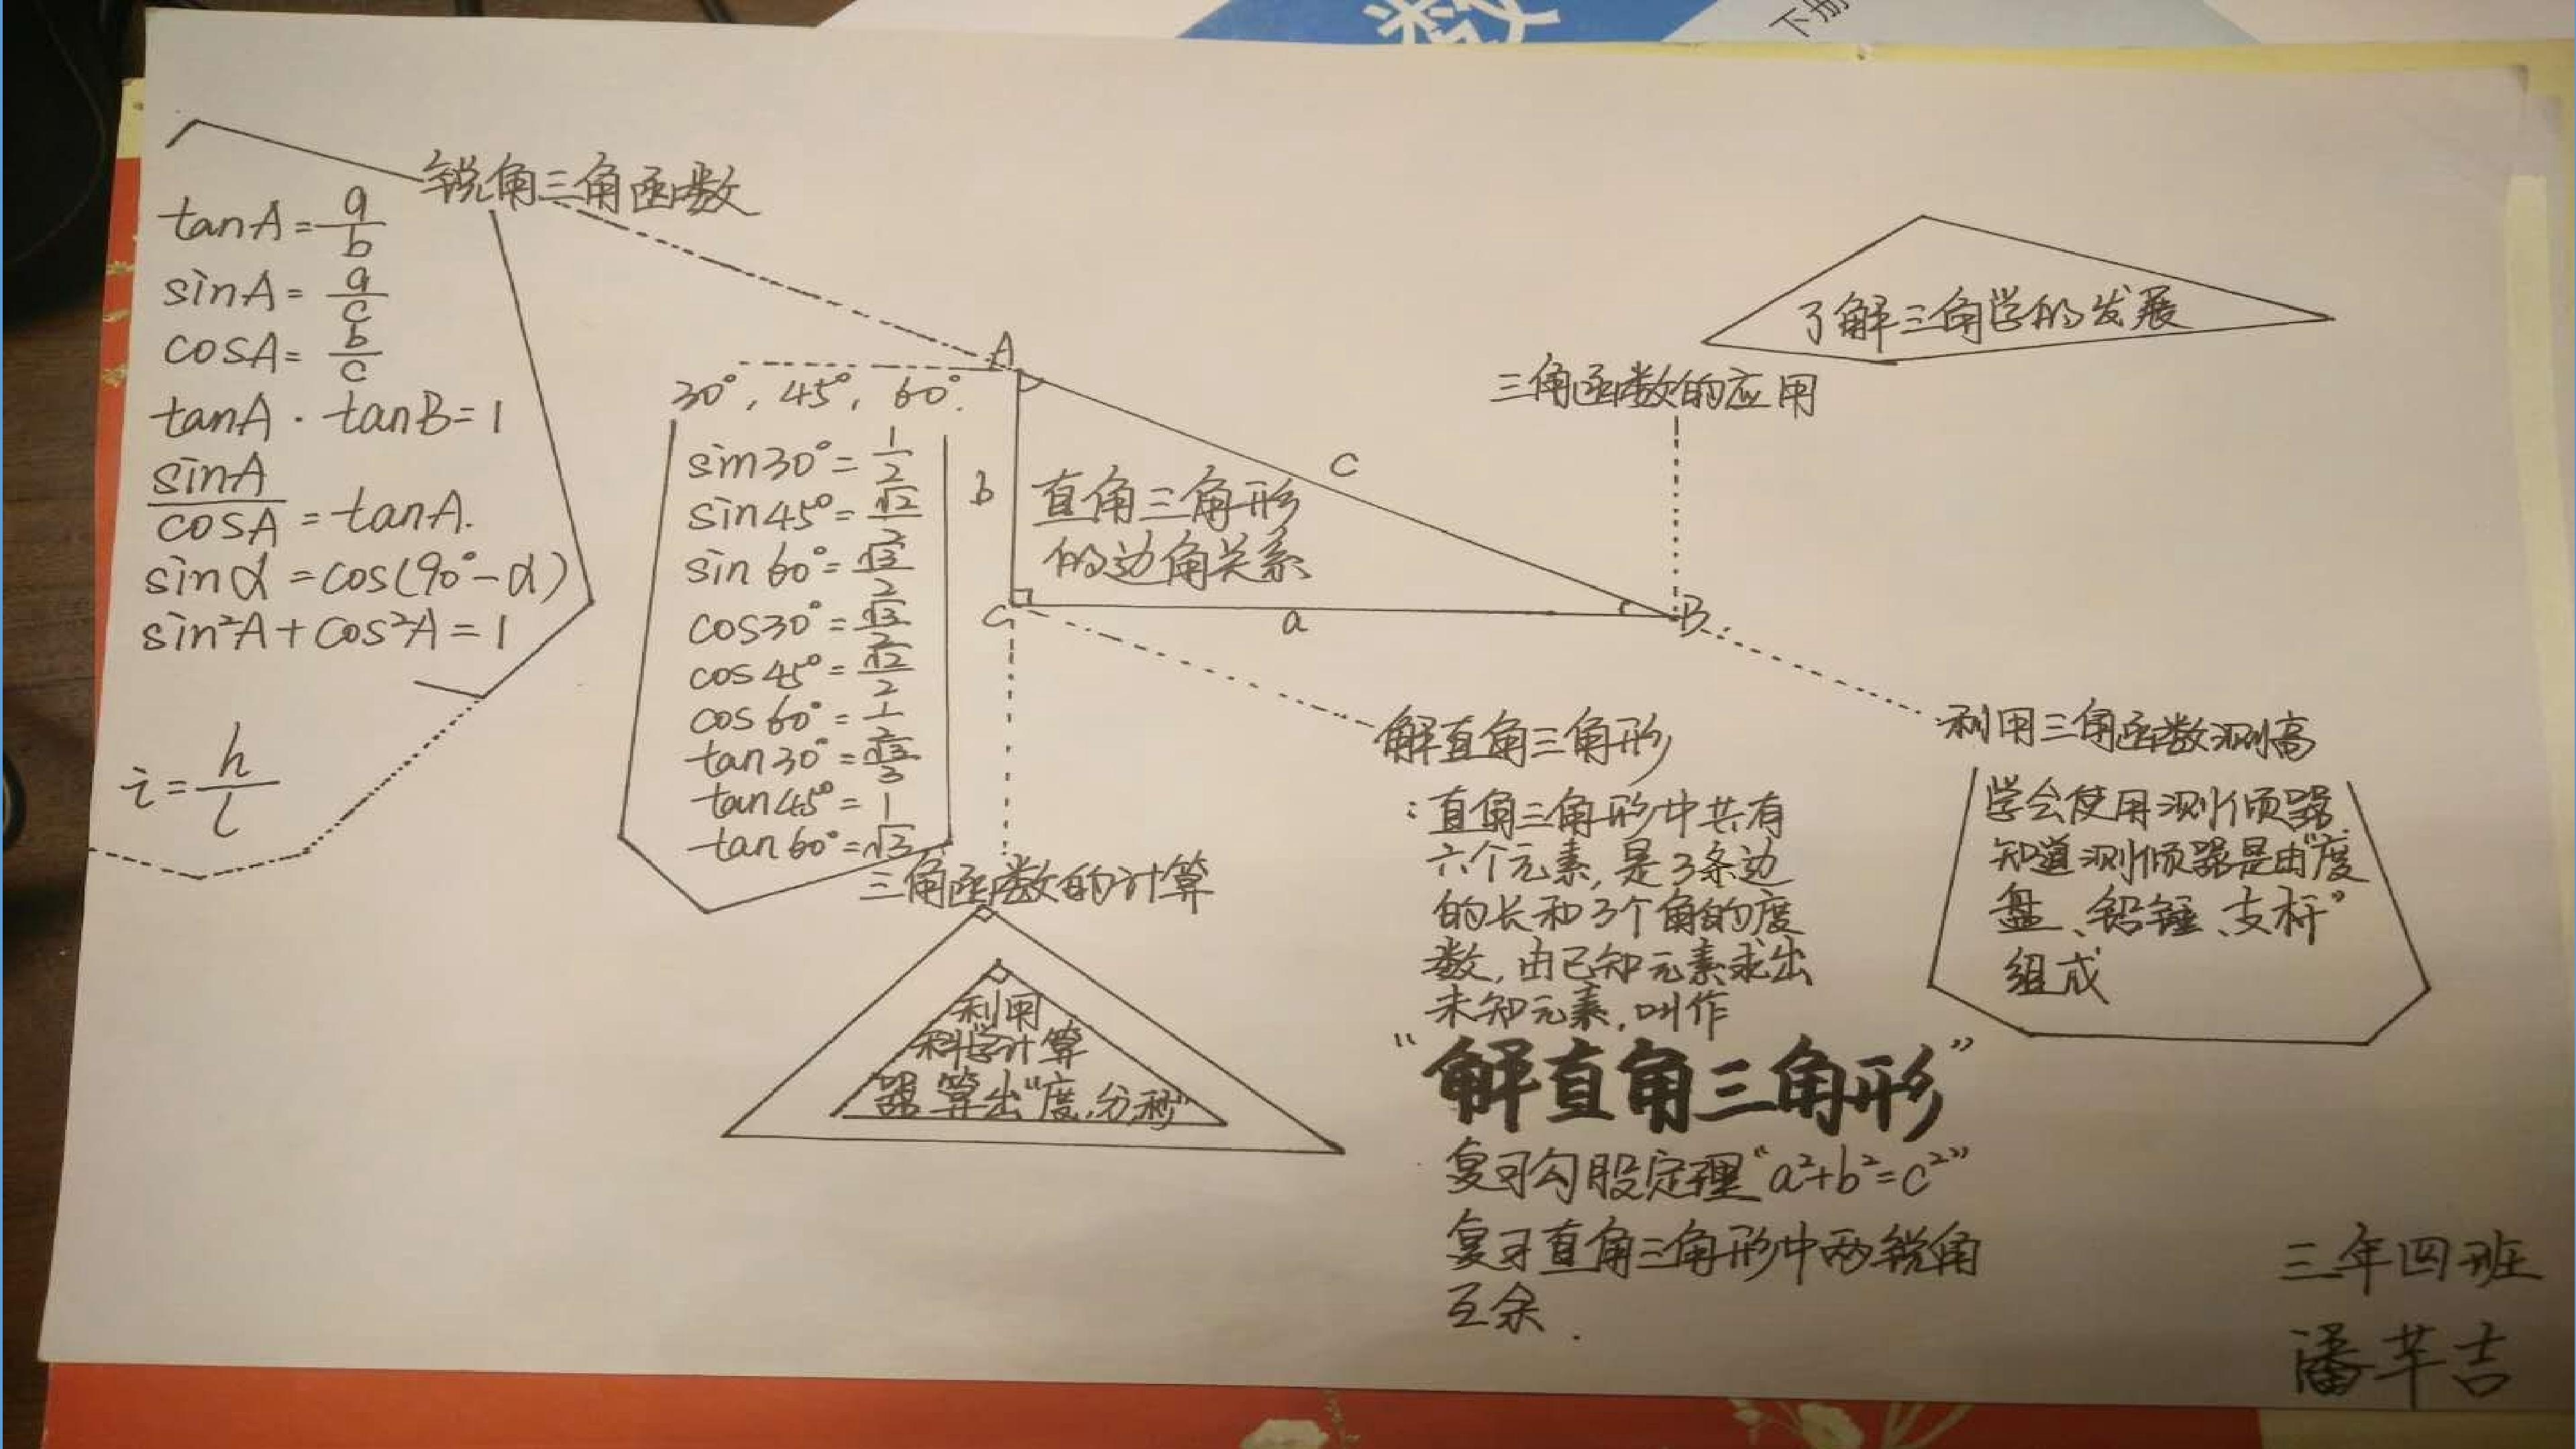 数
下册
锐角三角函数
tanA=a/b
sinA=a/c
cosA=b/c
tanA·tanB=1
sinA/cosA=tanA.
sinα=cos(90°-α)
sin²A+cos²A=1
i=h/l
30°,45°,60°.
sin30°=1/2
sin45°=√2/2
sin60°=√3/2
cos30°=√3/2
cos45°=√2/2
cos60°=1/2
tan30°=√3/3
tan45°=1
tan60°=√3
A
b
c
直角三角形
的边角关系
C
a
B
三角函数的计算
利用
科学计算
器算出“度,分,秒”
了解三角学的发展
三角函数的应用
解直角三角形
:直角三角形中共有
六个元素,是3条边
的长和3个角的度
数,由已知元素求出
未知元素,叫作
“解直角三角形”
复习勾股定理“a²+b²=c²”
复习直角三角形中两锐角
互余.
利用三角函数测高
学会使用测倾器.
知道测倾器是由“度
盘、铅锤、支杆”
组成
三年四班
潘芊吉